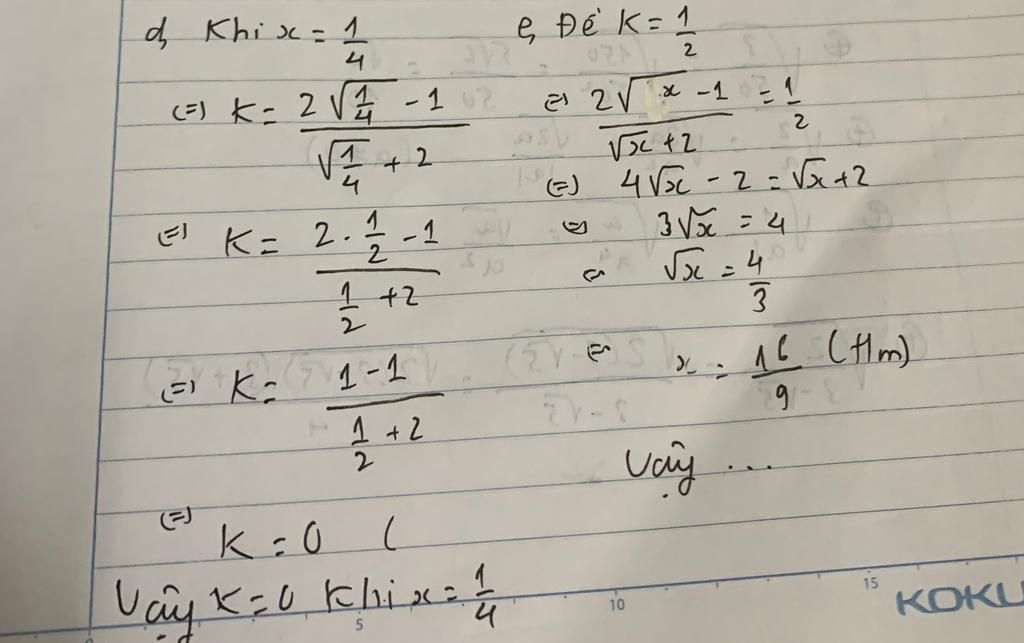 d, Khi x = 1/4
(=) K = (2√(1/4) - 1)/(√(1/4) + 2)
(=) K = (2 · 1/2 - 1)/(1/2 + 2)
(=) K = (1 - 1)/(1/2 + 2)
(=) K = 0 (
Vậy K = 0 Khi x = 1/4
e, Để K = 1/2
(=) (2√x - 1)/(√x + 2) = 1/2
(=) 4√x - 2 = √x + 2
(=) 3√x = 4
(=) √x = 4/3
(=) x = 16/9 (tm)
Vậy ...
5 10 15
KOKU